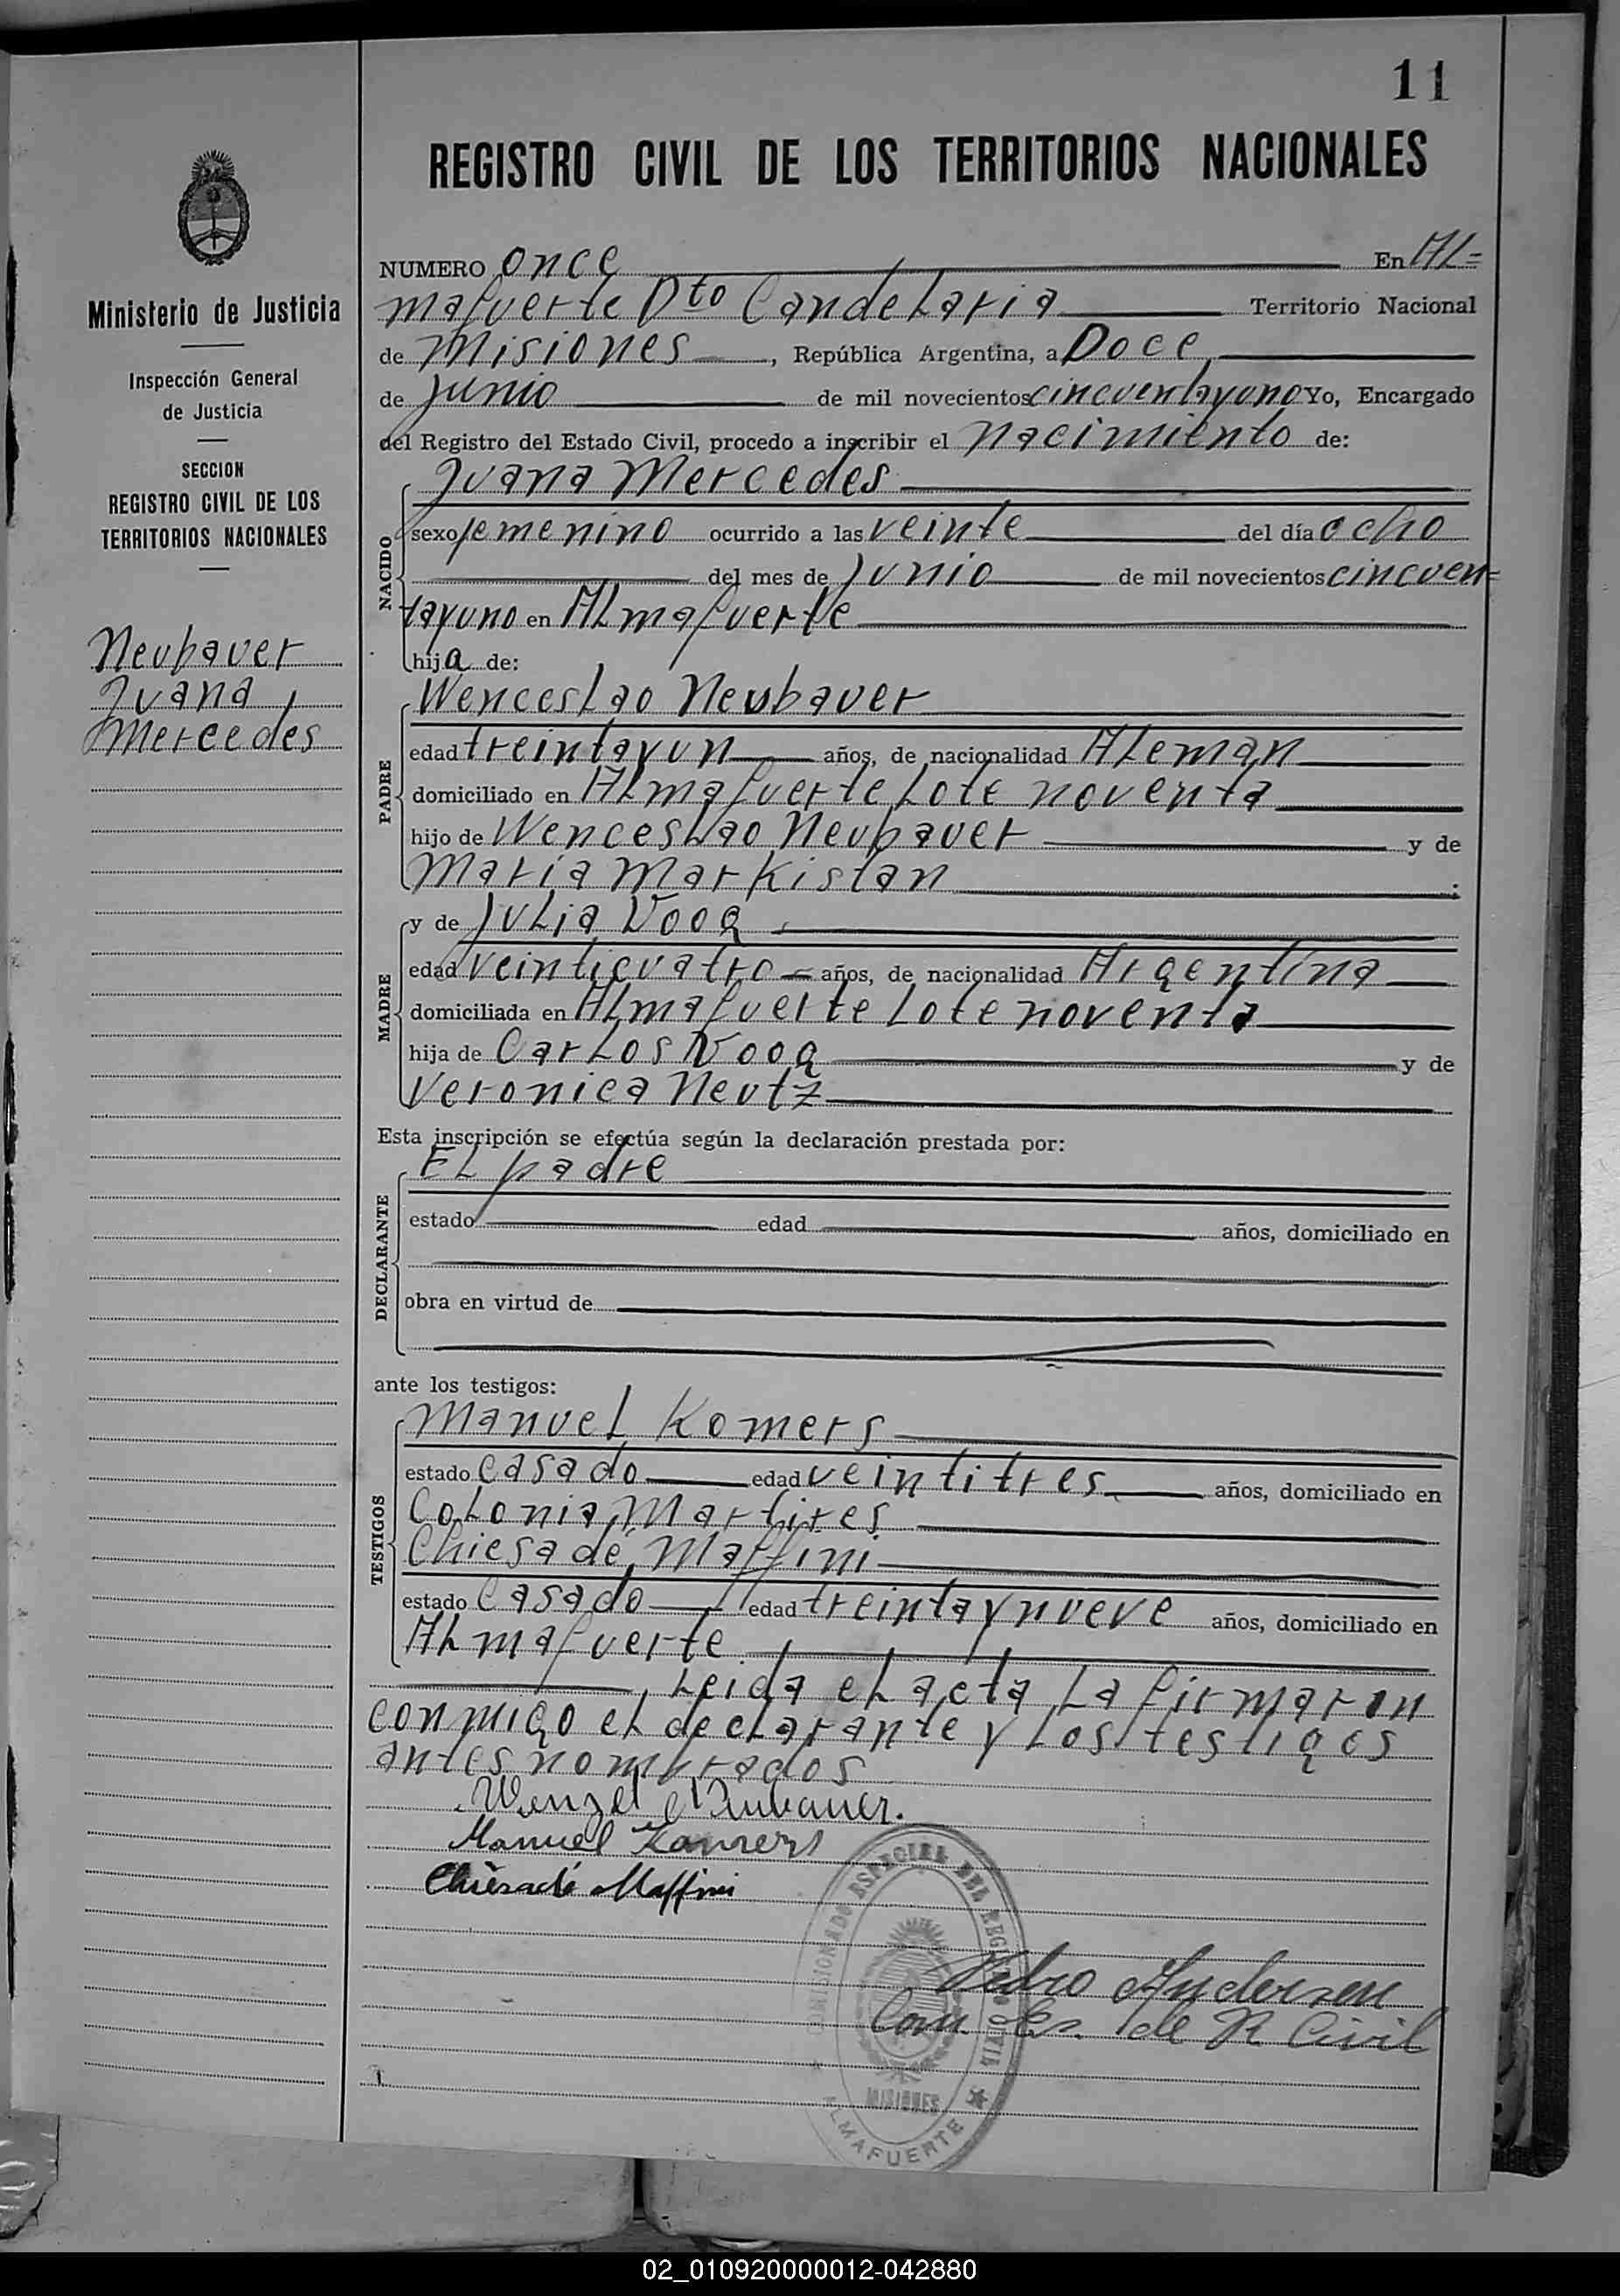 11
REGISTRO CIVIL DE LOS TERRITORIOS NACIONALES
Ministerio de Justicia
Inspección General
de Justicia
SECCION
REGISTRO CIVIL DE LOS
TERRITORIOS NACIONALES
Neubauer
Juana
Mercedes
NUMERO once En Al=
mafuerte Dto Candelaria Territorio Nacional
de Misiones, República Argentina, a Doce
de junio de mil novecientos cincuentayuno Yo, Encargado
del Registro del Estado Civil, procedo a inscribir el nacimiento de:
NACIDO
Juana Mercedes
sexo femenino ocurrido a las veinte del día ocho
del mes de Junio de mil novecientos cincuen=
tayuno en Almafuerte
hija de:
PADRE
Wenceslao Neubauer
edad treintayun años, de nacionalidad Aleman
domiciliado en Almafuerte Lote noventa
hijo de Wenceslao Neubauer y de
Maria Markistan ;
MADRE
y de Julia Voog
edad veinticuatro años, de nacionalidad Argentina
domiciliada en Almafuerte Lote noventa
hija de Carlos Voog y de
Veronica Neutz
Esta inscripción se efectúa según la declaración prestada por:
DECLARANTE
El padre
estado edad años, domiciliado en
obra en virtud de
ante los testigos:
TESTIGOS
Manuel Komers
estado casado edad veintitres años, domiciliado en
Colonia Martires
Chiesa dé Maffini
estado Casado edad treintaynueve años, domiciliado en
Almafuerte
, Leida el acta La firmaron
conmigo el declarante y Los testigos
antes nombrados
Wenzel Neubauer.
Manuel Komers
Chiesadé Maffini
COMISIONADO ESPECIAL DEL REGISTRO CIVIL
MISIONES
ALMAFUERTE
Pedro Andersen
Com. Es. de R Civil
02_010920000012-042880